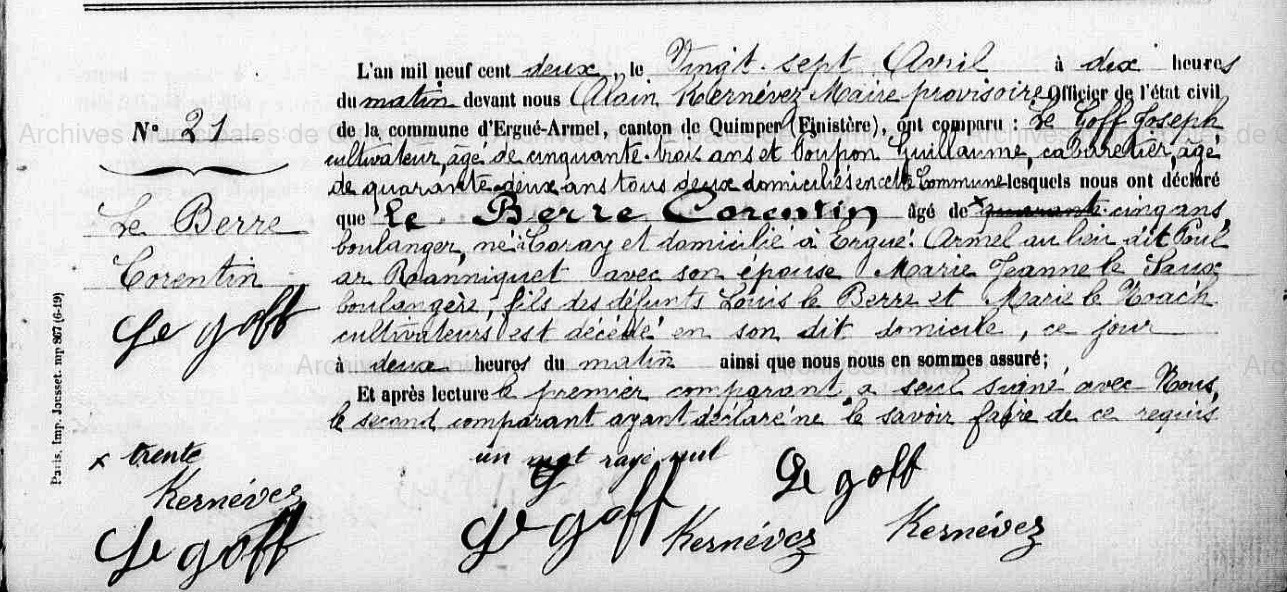 L'an mil neuf cent deux, le Vingt-sept Avril à dix heures
du matin devant nous Alain Kernévez Maire provisoire Officier de l'état civil
N° 21
de la commune d'Ergué-Armel, canton de Quimper (Finistère), ont comparu : Le Goff Joseph
cultivateur, âgé de cinquante-trois ans et Coupon Guillaume, cabaretier, âgé
de quarante-deux ans tous deux domiciliés en cette Commune lesquels nous ont déclaré
que Le Berre Corentin âgé de x quarante-cinq ans,
Le Berre
boulanger, né à Coray et domicilié à Ergué-Armel au lieu dit Poul
Corentin
ar Ranniquet avec son épouse Marie Jeanne le Saux
boulangère, fils des défunts Louis le Berre et Marie le Noac'h
Le goff
cultivateurs est décédé en son dit domicile, ce jour
à deux heures du matin ainsi que nous nous en sommes assuré ;
Et après lecture le premier comparant a seul signé avec Nous,
le second comparant ayant déclaré ne le savoir faire de ce requis
x trente
un mot rayé nul
Le goff
Kernévez
Le goff
Le goff
Kernévez
Kernévez
Paris, Imp. Jousset. mp 867 (6-19)
Archives Municipales de Quimper